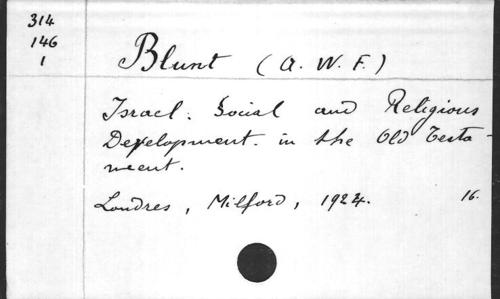 314
146
1
Blunt (A. W. F.)
Israel. Social and Religious
Development. in the Old Testa-
ment.
Londres, Milford, 1924. 16.